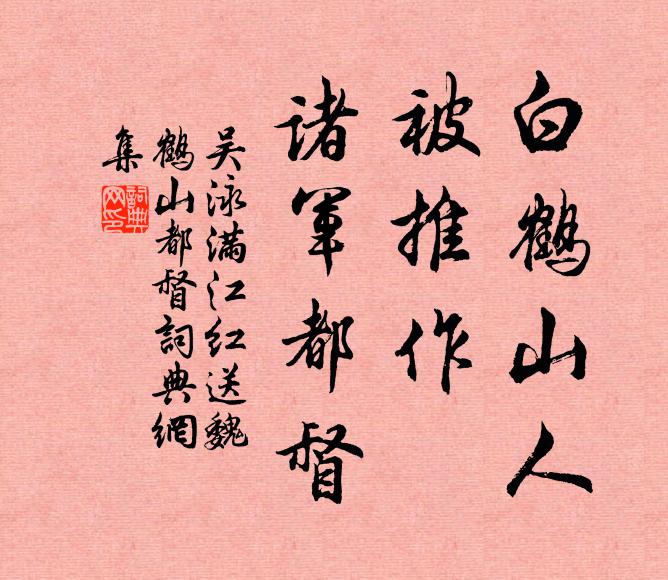 白鹤山人
被推作
诸军都督
吴泳满江红送魏
鹤山都督词典網
集
詞典
网印